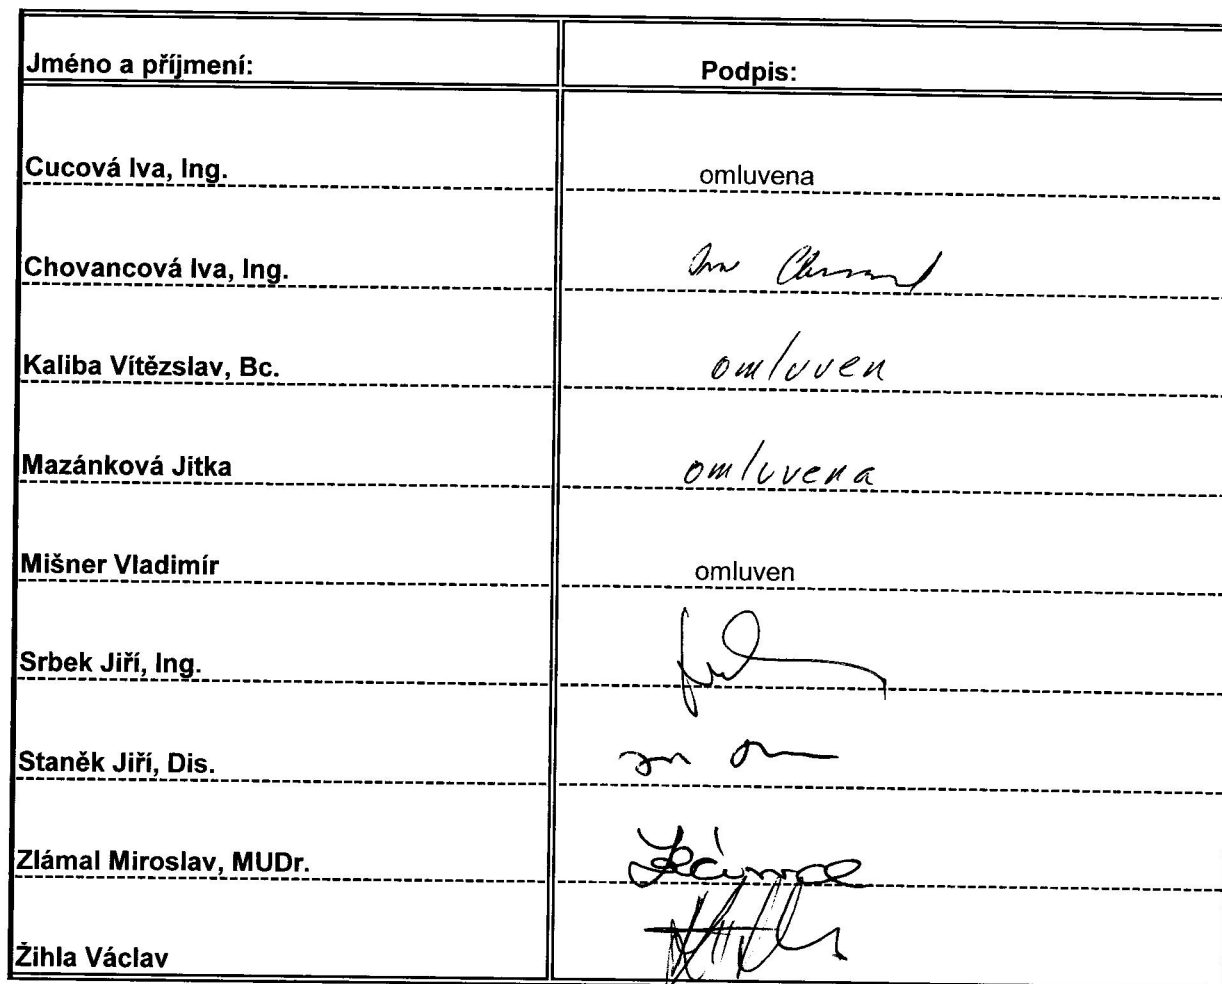 Jméno a příjmení: Podpis:
Cucová Iva, Ing. omluvena
Chovancová Iva, Ing.
Kaliba Vítězslav, Bc. omluven
Mazánková Jitka omluvena
Mišner Vladimír omluven
Srbek Jiří, Ing.
Staněk Jiří, Dis.
Zlámal Miroslav, MUDr.
Žihla Václav